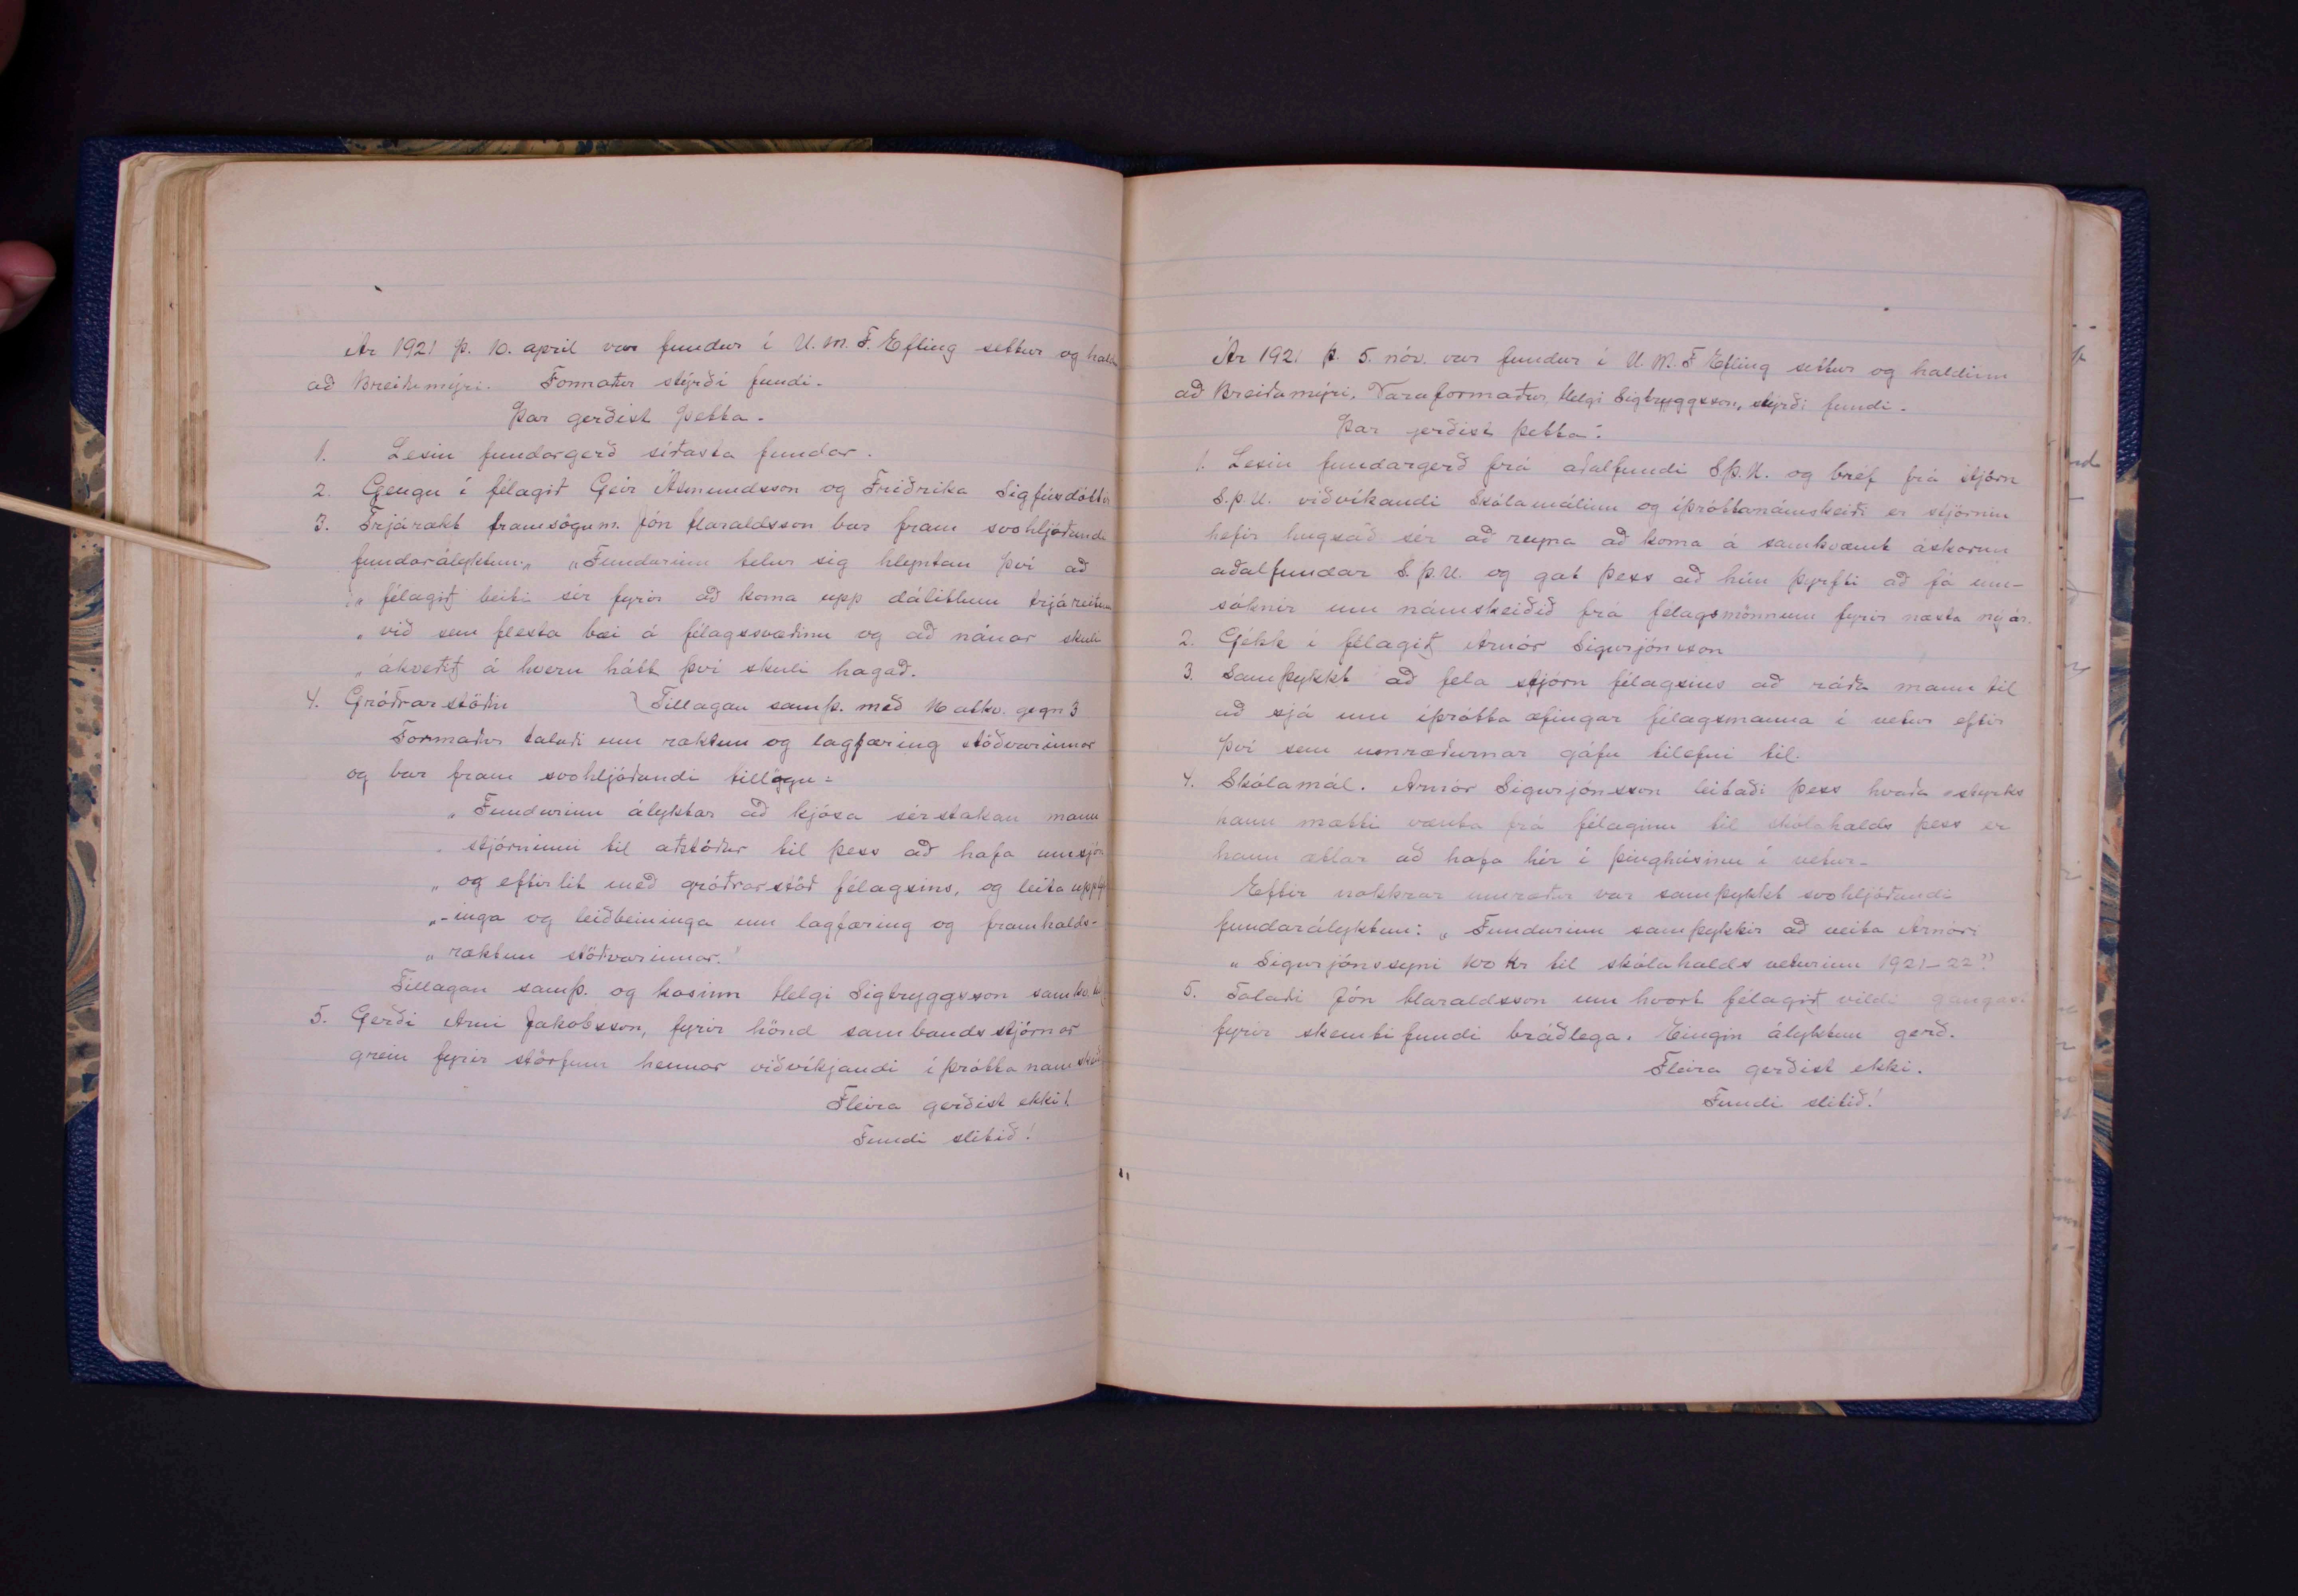 Ár 1921 þ. 10. april var fundur í U. M. F. Efling settur og
að Breiðumýri. Formaður stýrði fundi.
Þar gerðist þetta.
1. Lesin fundargerð síðasta fundar.
2. Gengu í félagið Geir Ásmundsson og Friðrika Sigfúsdóttir
3. Trjárækt framsögum. Jón Haraldsson bar fram svohljóðandi
fundarályktun: „Fundurinn telur sig hlyntan því að
„ félagið beiti sér fyrir að koma upp dálitlum trjáreitum
„ við sem flesta bæi á félagssvæðinu og að nánar skuli
„ ákveðið á hvern hátt því skuli hagað.
4. Gróðrarstöðin Tillagan samþ. með 16 atkv. gegn 3
Formaður talaði um ræktun og lagfæring stöðvarinnar
og bar fram svohljóðandi tillögu:
„ Fundurinn ályktar að kjósa sérstakan mann
„ stjórninni til aðstoðar til þess að hafa umsjón
„ og eftirlit með gróðrarstöð félagsins, og leita upplýs
„-inga og leiðbeininga um lagfæring og framhalds-
„ ræktun stöðvarinnar."
Tillagan samþ. og kosinn Helgi Sigtryggsson
5. Gerði Arni Jakobsson, fyrir hönd sambandsstjórnar
grein fyrir störfum hennar viðvíkjandi íþrótta námskeið
Fleira gerðist ekki!
Fundi slitið!
Ár 1921 þ. 5. nóv. var fundur í U. M. F Efling settur og haldinn
að Breiðamýri. Varaformaður, Helgi Sigtryggsson, stýrði fundi.
Þar gerðist þetta:
1. Lesin fundargerð frá aðalfundi S.Þ.U. og bréf frá stjórn
S.Þ.U. viðvíkandi Skólamálinu og íþróttanámskeiði er stjórnin
hefir hugsað sér að reyna að koma á samkvæmt áskorun
aðalfundar S.Þ.U. og gat þess að hún þyrfti að fá um-
sóknir um námskeiðið frá félagsmönnum fyrir næsta nýár.
2. Gékk í félagið Arnór Sigurjónsson
3. Samþykkt að fela stjórn félagsins að ráða mann til
að sjá um íþrótta æfingar félagsmanna í vetur eftir
því sem umræðurnar gáfu tilefni til.
4. Skólamál. Arnór Sigurjónsson leitaði þess hvaða styrks
hann mætti vænta frá félaginu til skólahalds þess er
hann ætlar að hafa hér í þinghúsinu í vetur.
Eftir nokkrar umræður var samþykkt svohljóðandi
fundarályktun: „ Fundurinn samþykkir að veita Arnóri
„ Sigurjónssyni 100 kr til skólahalds veturinn 1921-22"
5. Talaði Jón Haraldsson um hvort félagið vildi gangast
fyrir skemtifundi bráðlega. Eingin ályktun gerð.
Fleira gerðist ekki.
Fundi slitið!